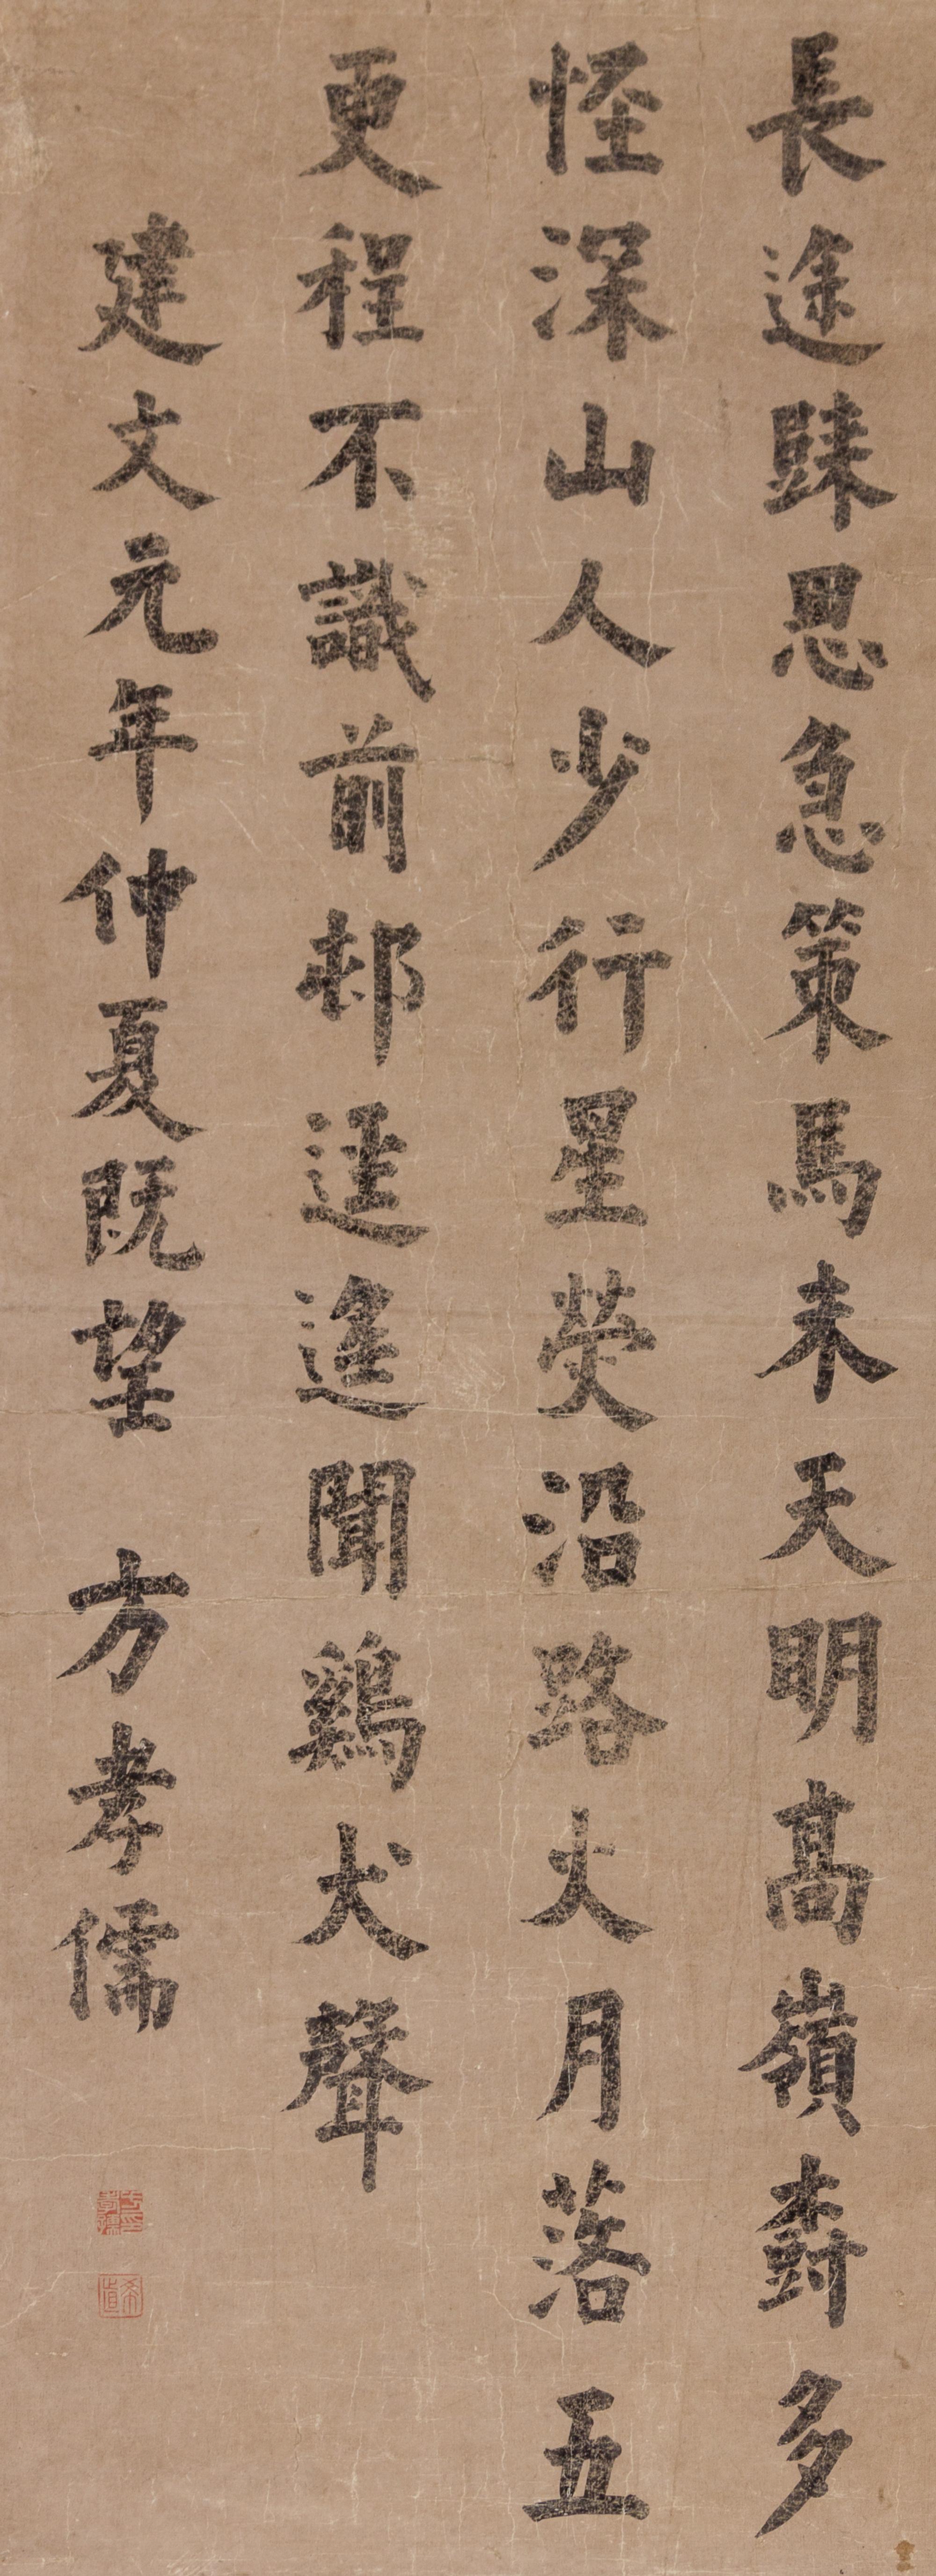 長途歸思急策馬未天明高嶺樹多
怪深山人少行星熒沿路火月落五
更程不識前邨逕遙聞鷄犬聲
建文元年仲夏既望 方孝儒
希直